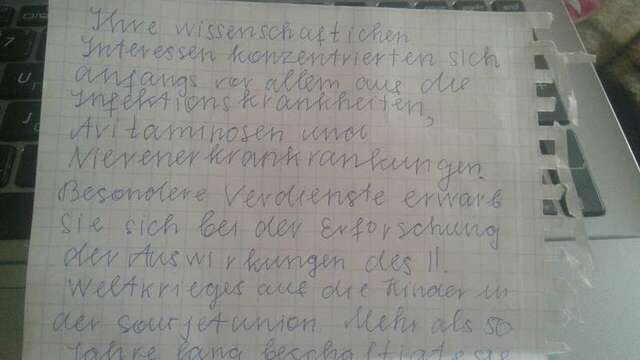 Ihre wissenschaftlichen
Interessen konzentrierten sich
anfangs vor allem aus die
Infektionskrankheiten,
Avitaminosen und
Nierenerkrankrankungen.
Besondere Verdienste erwarb
sie sich bei der Erforschung
der Auswirkungen des II.
Weltkrieges aus die Kinder in
der Sowjetunion. Mehr als 50
Jahre lang beschäftigte sie